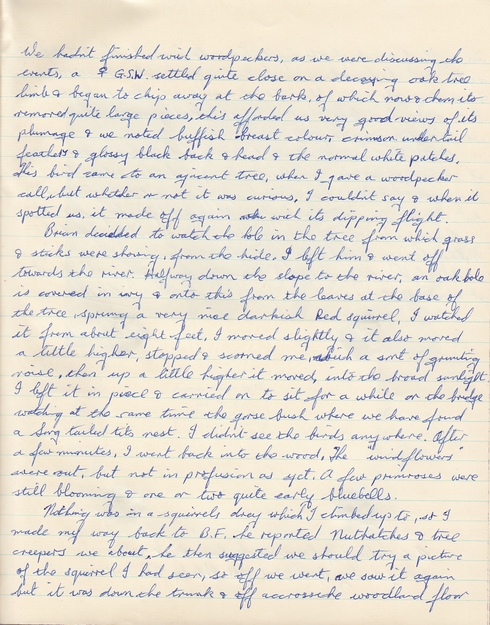 We hadn't finished with woodpeckers, as we were discussing the
events, a ♀ G.S.W. settled quite close on a decaying oak tree
limb & began to chip away at the bark, of which now & then its
removed quite large pieces, this afforded us very good views of its
plumage & we noted buffish breast colour, crimson under tail
feathers & glossy black back & head & the normal white patches.
This bird came to an ajacent tree, when I gave a woodpecker
call, but whether or not it was curious, I couldn't say & when it
spotted us, it made off again with its dipping flight.
Brian decided to watch the hole in the tree from which grass
& sticks were showing, from the hide. I left him & went off
towards the river. Halfway down the slope to the river, an oak bole
is covered in ivy & onto this from the leaves at the base of
the tree sprung a very nice darkish Red squirrel, I watched
it from about eight feet, I moved slightly & it also moved
a little higher, stopped & scorned me, with a sort of grunting
noise, then up a little higher it moved, into the broad sunlight.
I left it in piece & carried on to sit for a while on the bridge
watching at the same time the gorse bush where we have found
a long tailed tits nest. I didn't see the birds anywhere. After
a few minutes, I went back into the wood. The "windflowers"
were out, but not in profusion as yet. A few primroses were
still blooming & one or two quite early bluebells.
Nothing was in a squirrels drey which I climbed up to, so I
made my way back to B.F. he reported Nuthatches & tree
creepers we about, he then suggested we should try a picture
of the squirrel I had seen, so off we went, we saw it again
but it was down the trunk & off accross the woodland floor